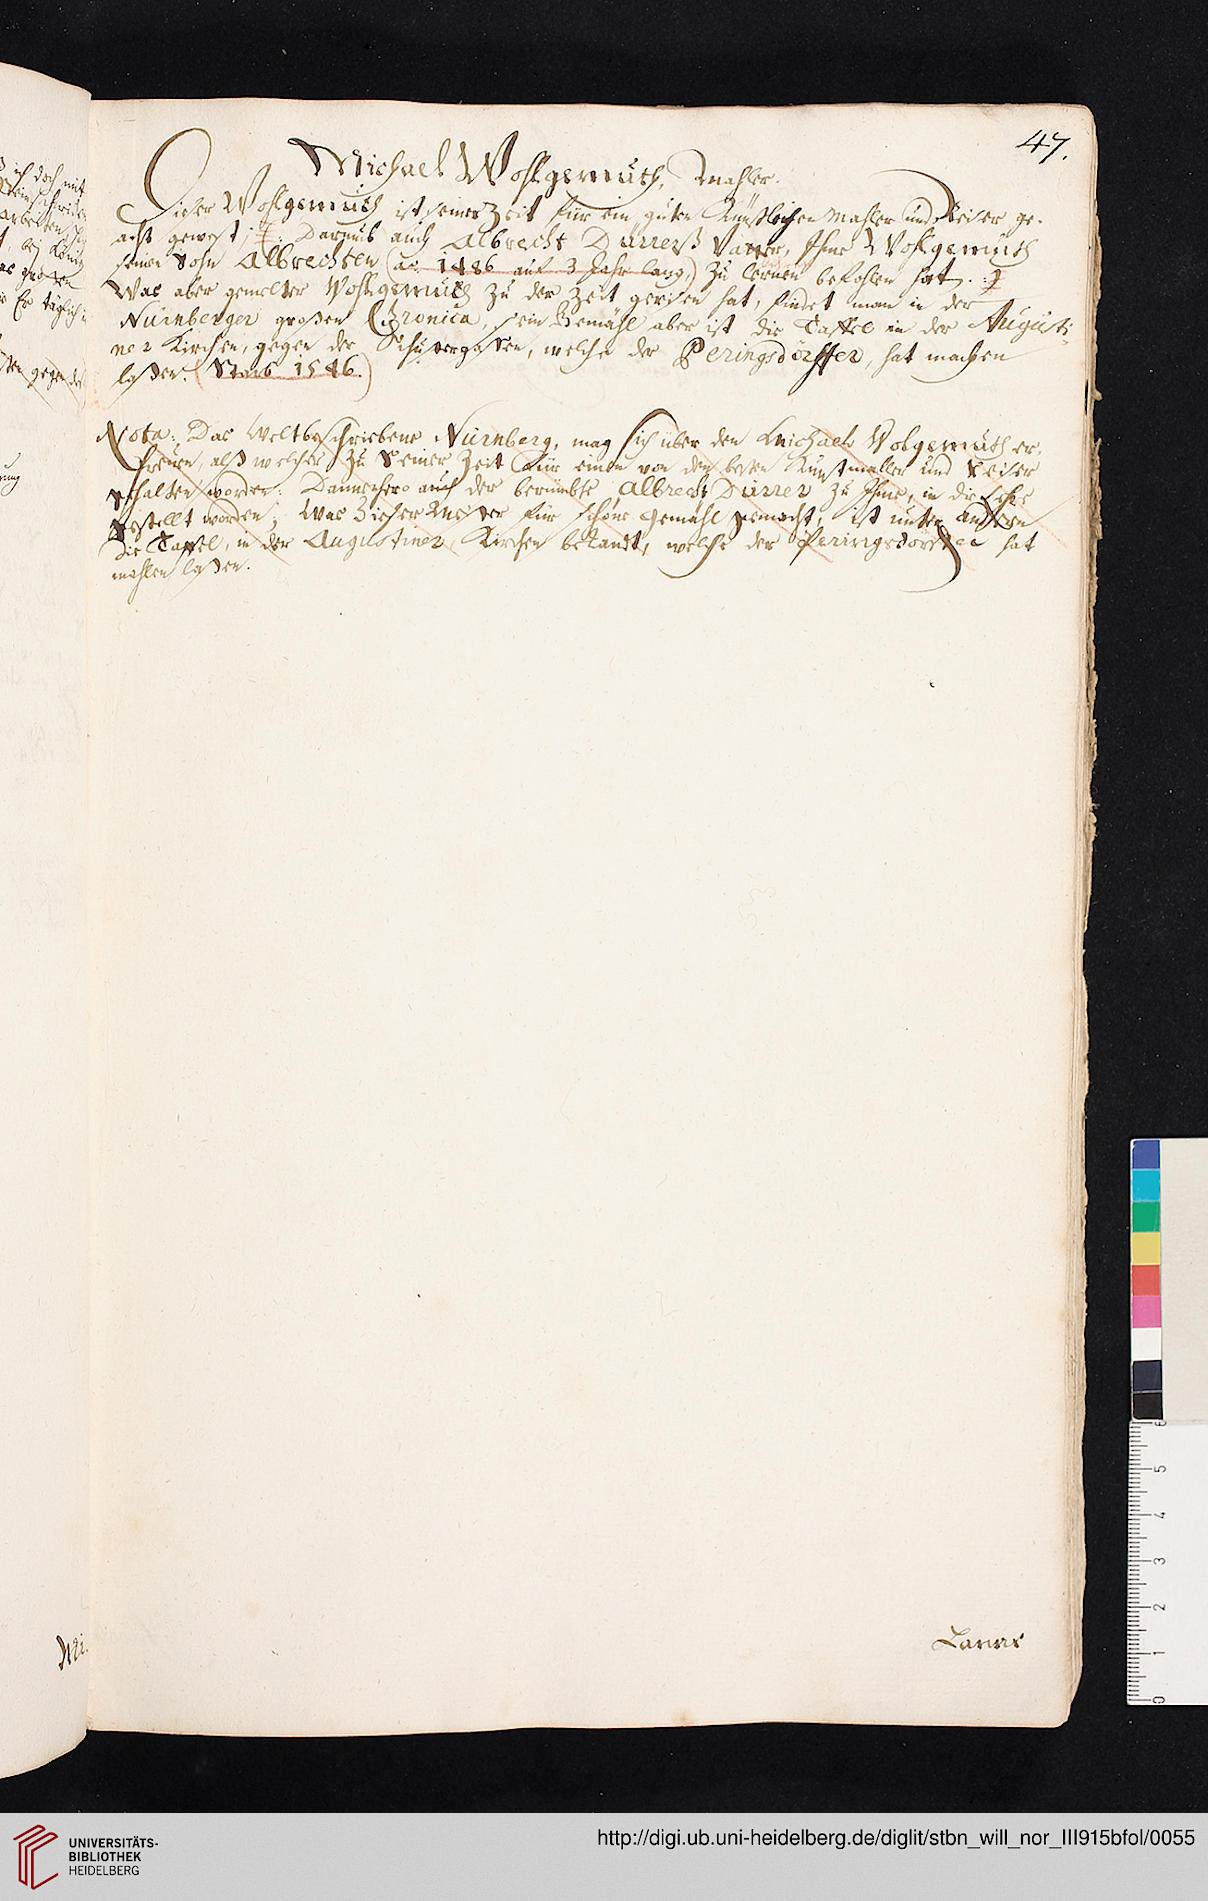 47.
Michael Wohlgemuth, Mahler.
Dieser Wohlgemuth ist seiner Zeit für ein guten Künstleichen Mahler und Reiser ge-
acht gewest, darumb auch Albrecht Dürerß Vatter, Ihme Wohlgemuth
seinen Sohn Albrechten (ao. 1486 auf 3 Jahr lang,) zu lernen befohlen hat.
Was aber gemelter Wohlgemuth zu der Zeit gerisen hat, findet man in der
Nürnberger großen Chronica, sein Gemähl aber ist die Taffel in der Augusti-
ner Kirchen, gegen der Schustergaßen, welche der Peringsdörffer, hat machen
laßen. (Starb 1546.)
Nota: Das Weltbeschriebene Nürnberg, mag sich über den Michael Wolgemuth er-
freuen, alß welcher zu Seiner Zeit für einen von den besten Kunstmaller und Reiser
gehalten worden: Dannenhero auch der berümbte Albrecht Dürrer zu Ihme, in die Lehre
gestellt worden; Was dieser Meister für schöne Gemähl gemacht, ist unter andern
die Taffel, in der Augustiner Kirchen bekandt, welche der Peringsdörffer hat
mahlen laßen.
ich doch mit
arbeiten
großen
täglich
gegen der
Lucas
UNIVERSITÄTS-
BIBLIOTHEK
HEIDELBERG
http://digi.ub.uni-heidelberg.de/diglit/stbn_will_nor_III915bfol/0055
6
5
4
3
2
1
0